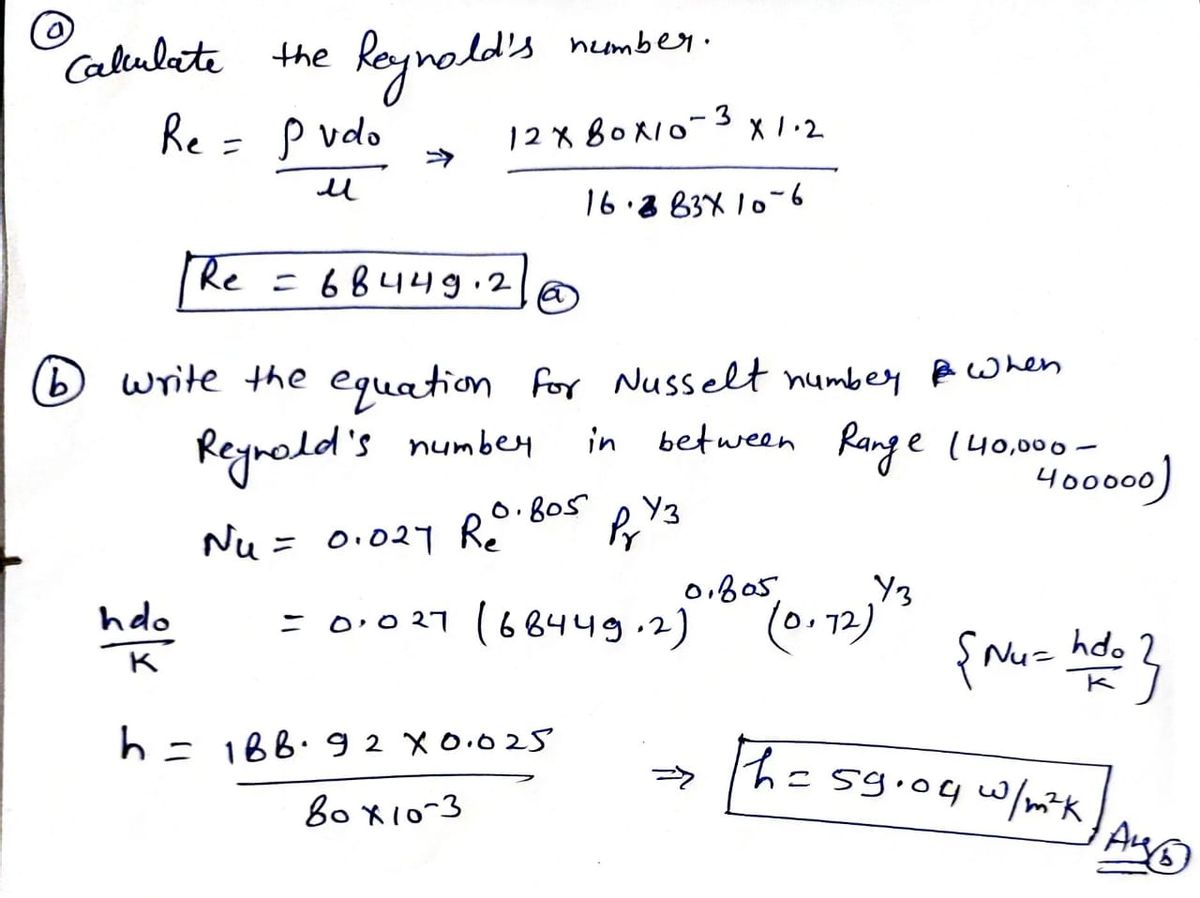 ⓐ
Calculate the Reynold's number.
Re = ρvdo/μ ⇒ 12×80×10⁻³×1.2/16.83×10⁻⁶
Re = 68449.2 ⓐ
ⓑ write the equation for Nusselt number when
Reynold's number in between Range (40,000 –
400000)
Nu = 0.027 Re^0.805 Pr^1/3
hdo/K = 0.027 (68449.2)^0.805 (0.72)^1/3 {Nu = hdo/K}
h = 188.92 × 0.025/80×10⁻³ ⇒ h = 59.04 w/m²K Ans ⓑ